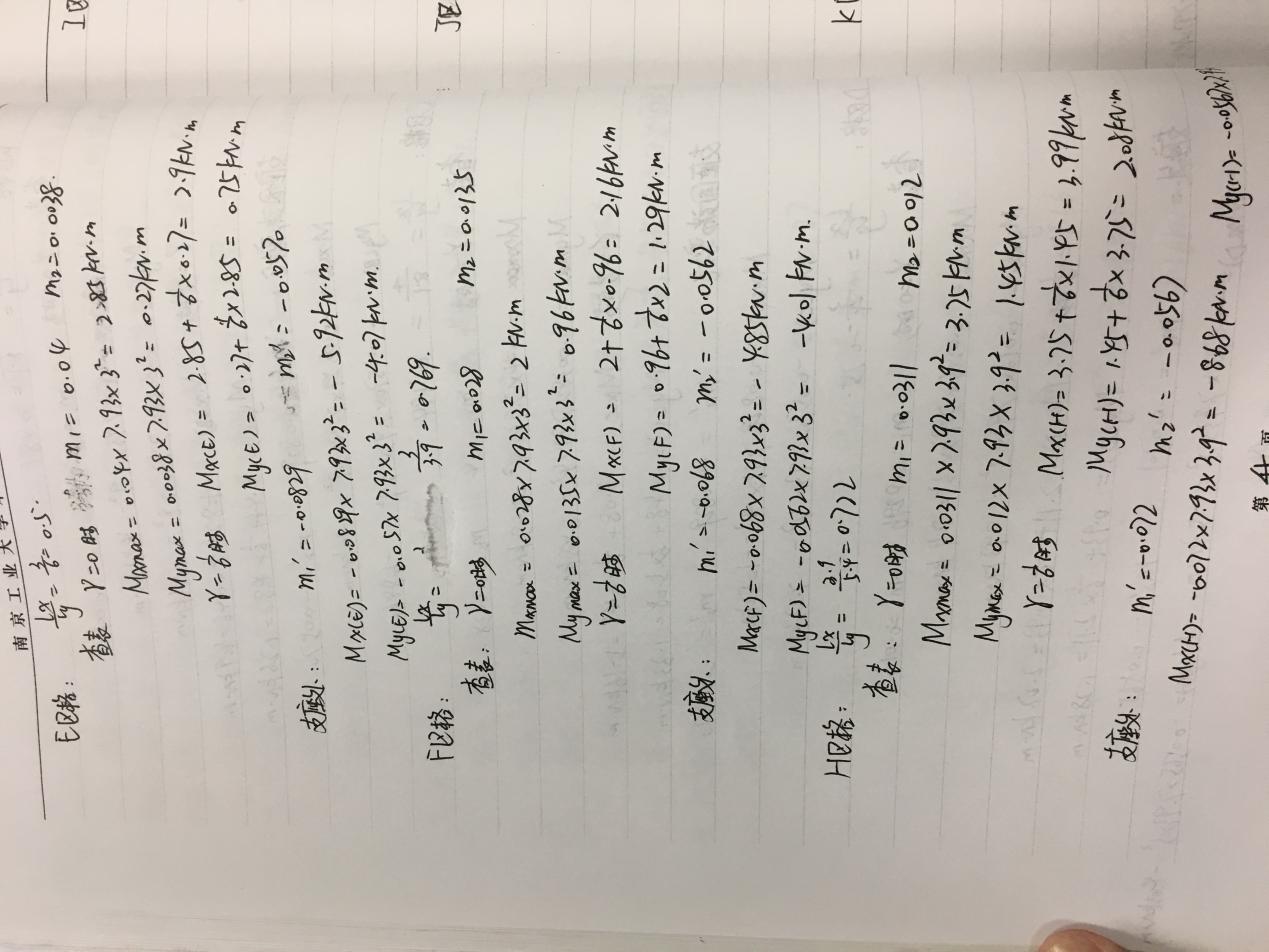 南京工业大学
E区格: lx/ly = 3/6 = 0.5.
查表 γ=0时 m1 = 0.04 m2 = 0.0038.
Mxmax = 0.04×7.93×3² = 2.85kN·m
Mymax = 0.0038×7.93×3² = 0.27kN·m
γ=1/6时 Mx(E) = 2.85+1/6×0.27 = 2.9kN·m
My(E) = 0.27+1/6×2.85 = 0.75kN·m
支座处: m1' = -0.0829 m2' = -0.0570
Mx(E) = -0.0829×7.93×3² = -5.92kN·m
My(E) = -0.057×7.93×3² = -4.07kN·m.
F区格: lx/ly = 3/3.9 = 0.769.
查表: γ=0时 m1=0.028 m2=0.0135
Mxmax = 0.028×7.93×3² = 2kN·m
Mymax = 0.0135×7.93×3² = 0.96kN·m
γ=1/6时 Mx(F) = 2+1/6×0.96 = 2.16kN·m
My(F) = 0.96+1/6×2 = 1.29kN·m
支座处: m1' = -0.068 m2' = -0.0562
Mx(F) = -0.068×7.93×3² = -4.85kN·m
My(F) = -0.0562×7.93×3² = -4.01kN·m.
H区格: lx/ly = 3.9/5.4 = 0.722
查表: γ=0时 m1 = 0.0311 m2=0.012
Mxmax = 0.0311×7.93×3.9² = 3.75kN·m
Mymax = 0.012×7.93×3.9² = 1.45kN·m
γ=1/6时 Mx(H) = 3.75+1/6×1.45 = 3.99kN·m
My(H) = 1.45+1/6×3.75 = 2.08kN·m
支座处: m1' = -0.072 m2' = -0.0567
Mx(H) = -0.072×7.93×3.9² = -8.68kN·m My(H) = -0.0567×7.9
第 4 页
I区
J区
K